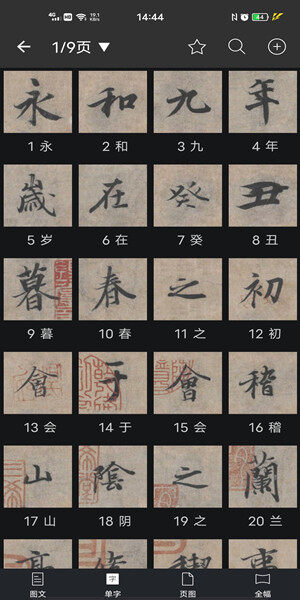 4G HD 19.1 14:44 N 44
1/9页 ▼
永 和 九 年
1 永 2 和 3 九 4 年
歲 在 癸 丑
5 岁 6 在 7 癸 8 丑
暮 春 之 初
9 暮 10 春 11 之 12 初
會 于 會 稽
13 会 14 于 15 会 16 稽
山 陰 之 蘭
17 山 18 阴 19 之 20 兰
亭 脩 稧 事
字
图文 单字 页图 全幅